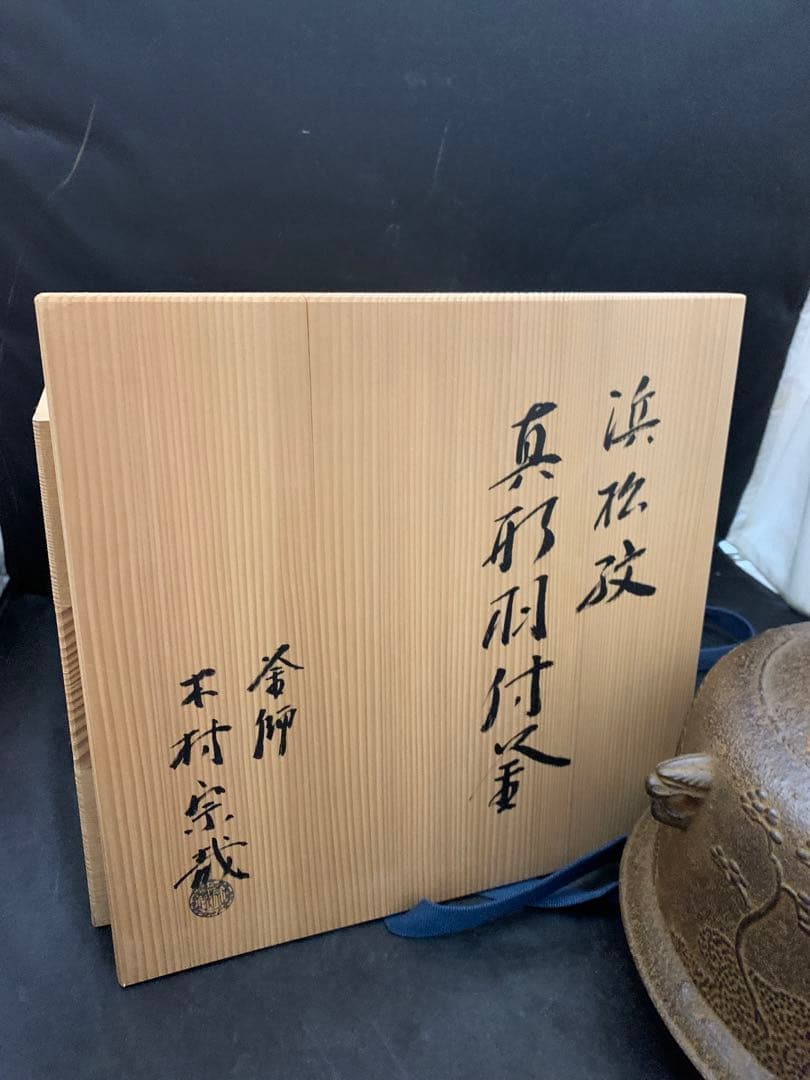 浜松紋
真形羽付釜
釜師
木村宗哉